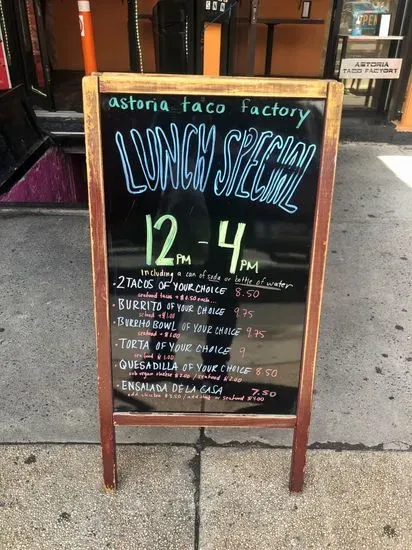 OPEN
ASTORIA
TACO FACTORY
astoria taco factory
LUNCH SPECIAL
12 PM - 4 PM
including a can of soda or bottle of water
· 2 TACOS OF YOUR CHOICE 8.50
seafood tacos + $1.50 each...
· BURRITO OF YOUR CHOICE 9.75
seafood + $1.00
· BURRITO BOWL OF YOUR CHOICE 9.75
seafood + $1.00
· TORTA OF YOUR CHOICE 9
seafood $1.00
· QUESADILLA OF YOUR CHOICE 8.50
sub vegan cheese $2.00 / seafood $2.00
· ENSALADA DE LA CASA 7.50
add chicken $3.50 / add steak or seafood $4.00